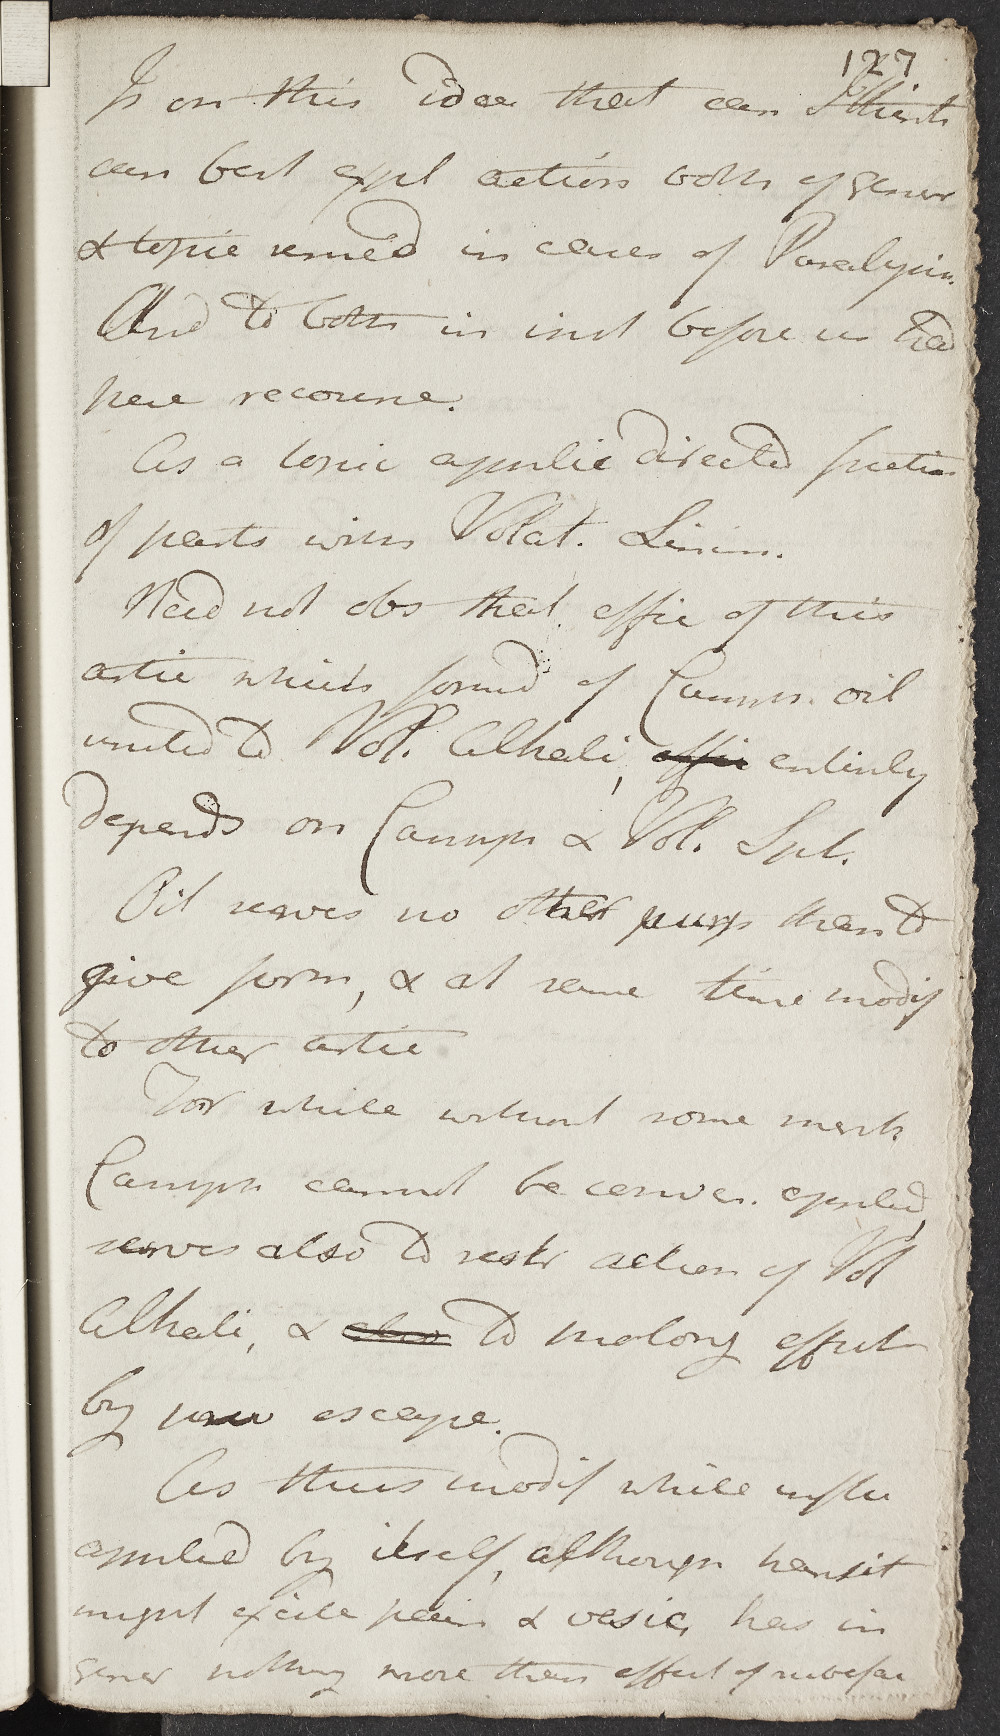 127
Is on this idea that can I think
can best expl action both of gener
& topic remed in cases of Paralysis.
And to both in inst before us had
here recourse.
As a topic applic directed friction
of parts with Volat. Linim.
Need not obs that effic of this
artic which is formd of Camph. oil
united to Vol. Alkali, effic entirely
depends on Camph & Vol. Spt.
Oil serves no other purp than to
give form, & at same time modif
to other artic
For while without some menst
Camph cannot be conven. applied,
serves also to restr action of Vol
Alkali, & also to prolong effect
by prev escape.
As thus modif while
applied by itself, although transit
might excite pain & vesic, has in
gener nothing more than effect of rubefac